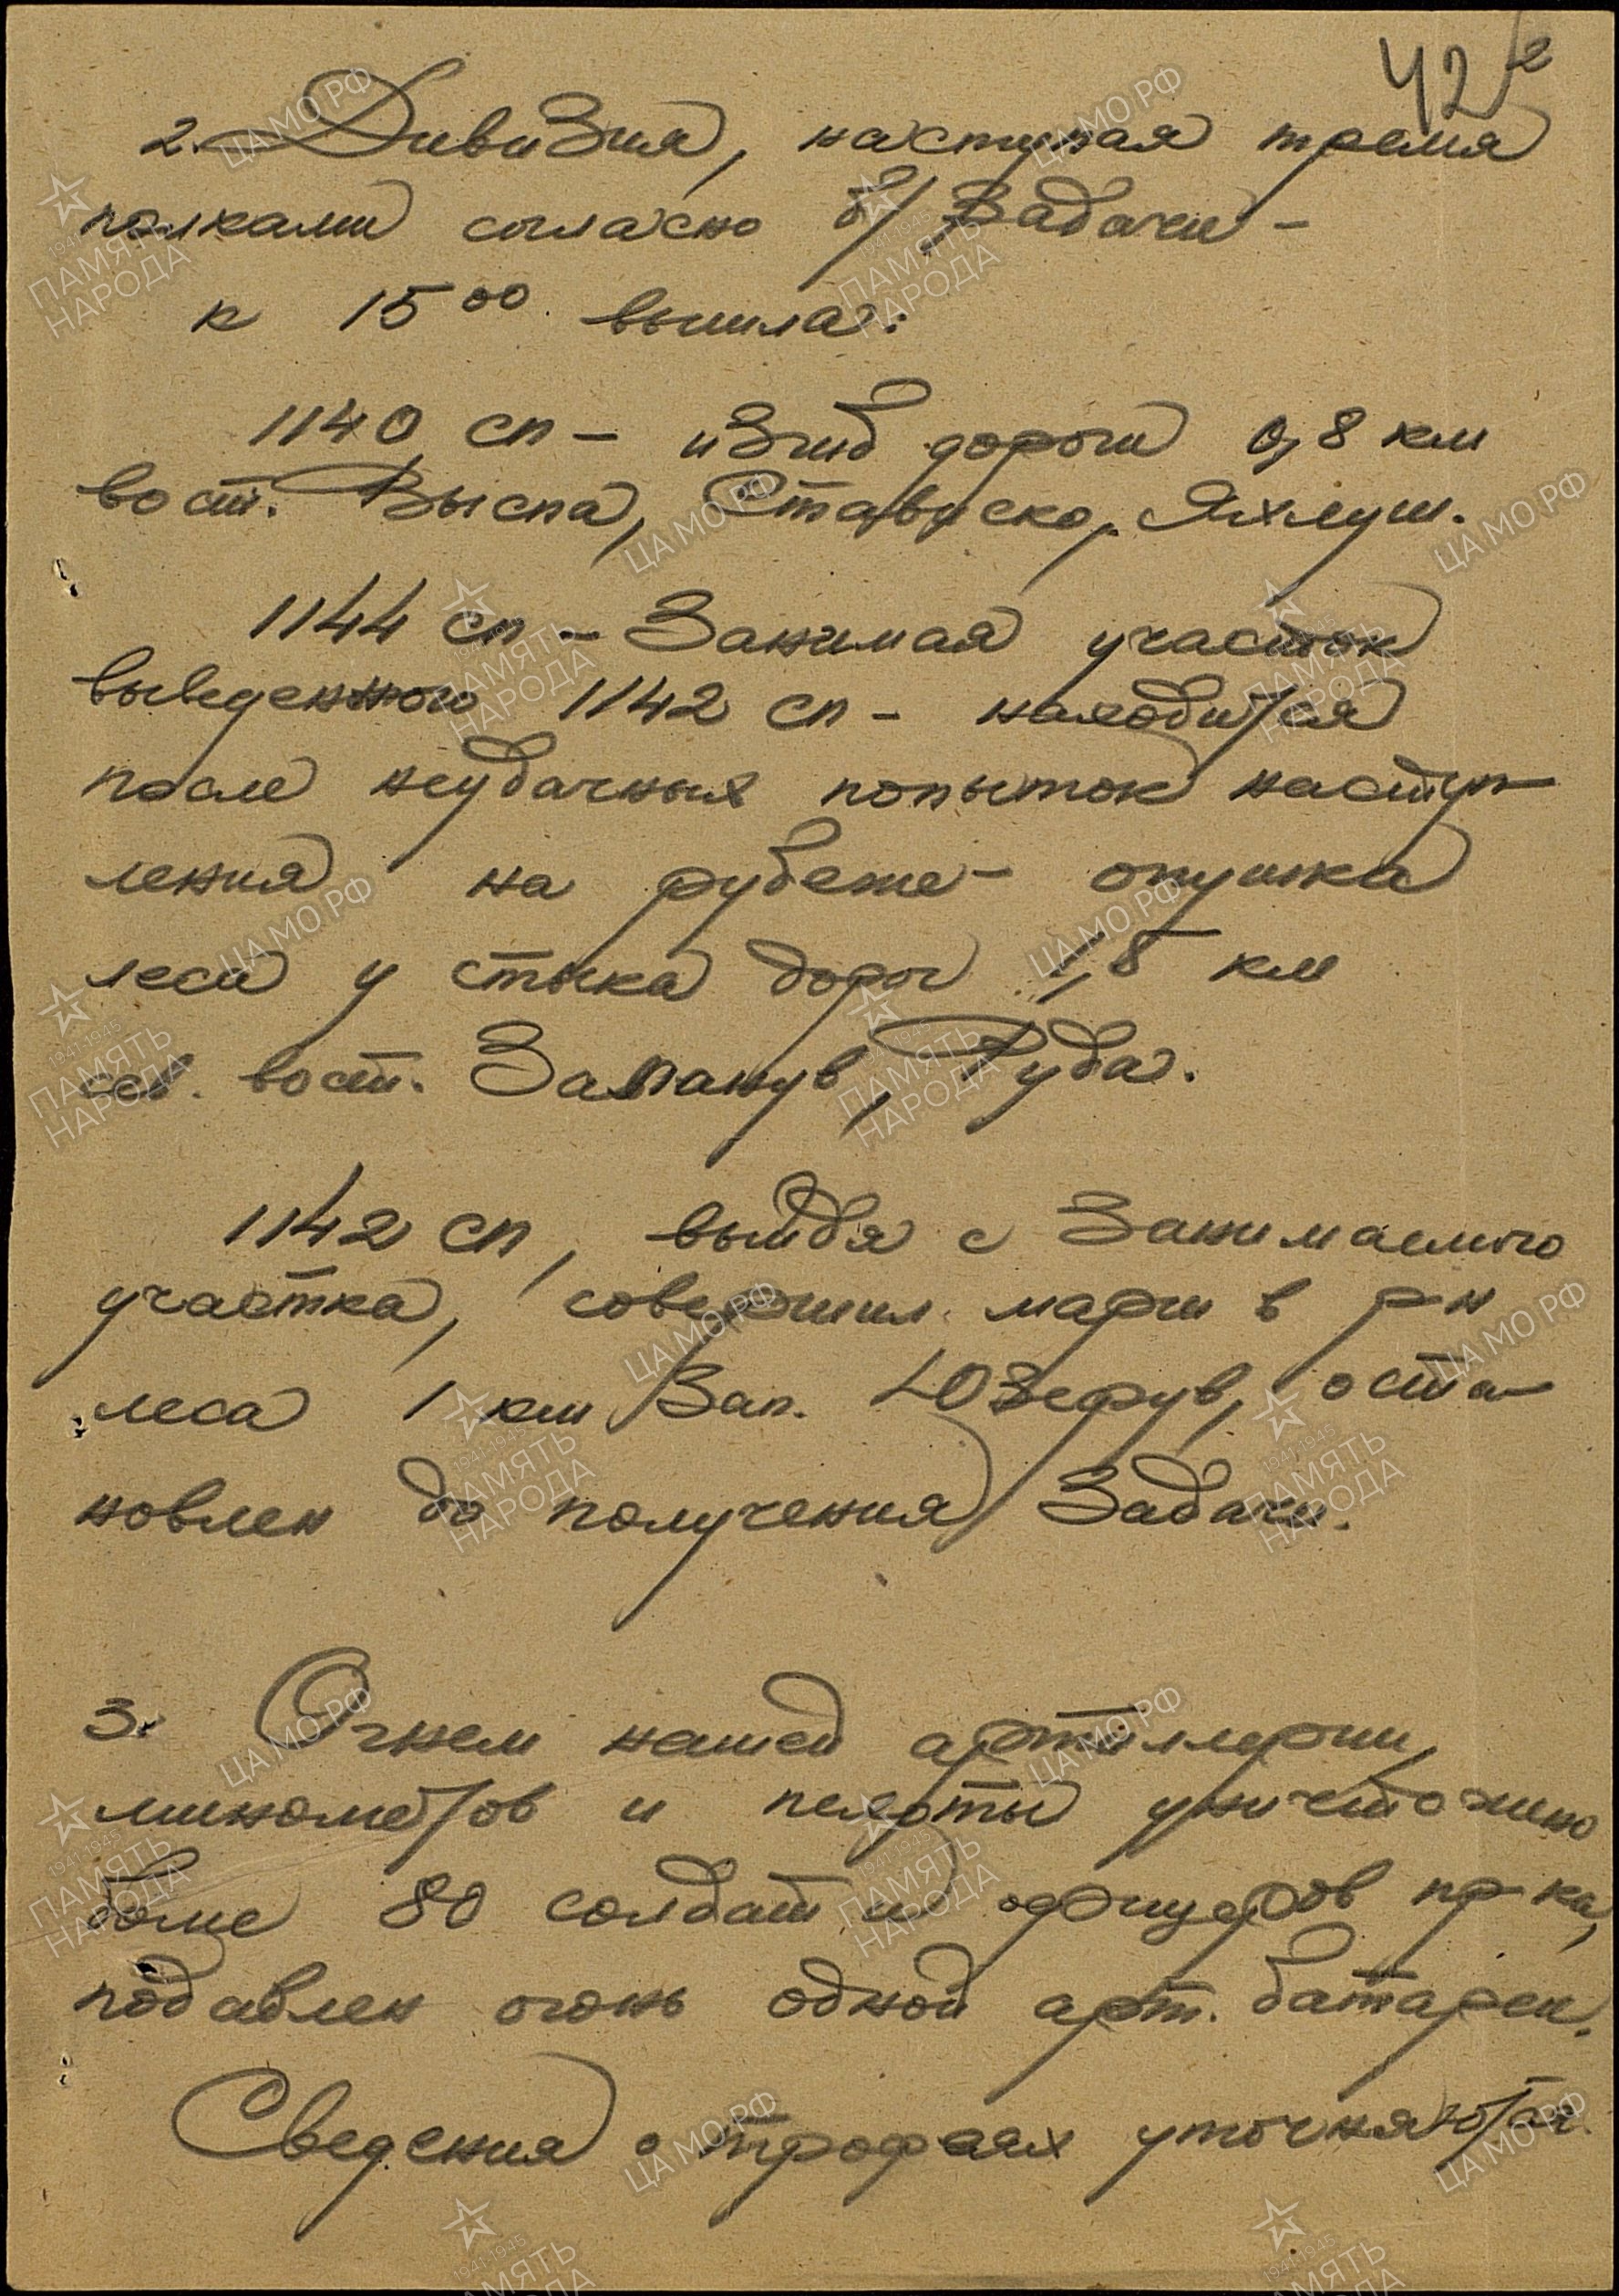 42
2. Дивизия, наступая тремя
полками согласно б/задачи –
к 15⁰⁰ вышла:
1140 сп – изгиб дороги 0,8 км
вост. Выспа, Стависко, Яхлуш.
1144 сп – занимая участок
выведенного 1142 сп – находится
после неудачных попыток наступ-
ления на рубеже – опушка
леса у стыка дорог 1,5 км
сев. вост. Заланув, Руда.
1142 сп, выйдя с занимаемого
участка, совершил марш в р-н
леса 1 км зап. Юзефув, оста-
новлен до получения задачи.
3. Огнем нашей артиллерии,
минометов и пехоты уничтожено
более 80 солдат и офицеров пр-ка,
подавлен огонь одной арт. батареи.
Сведения о трофеях уточняются.